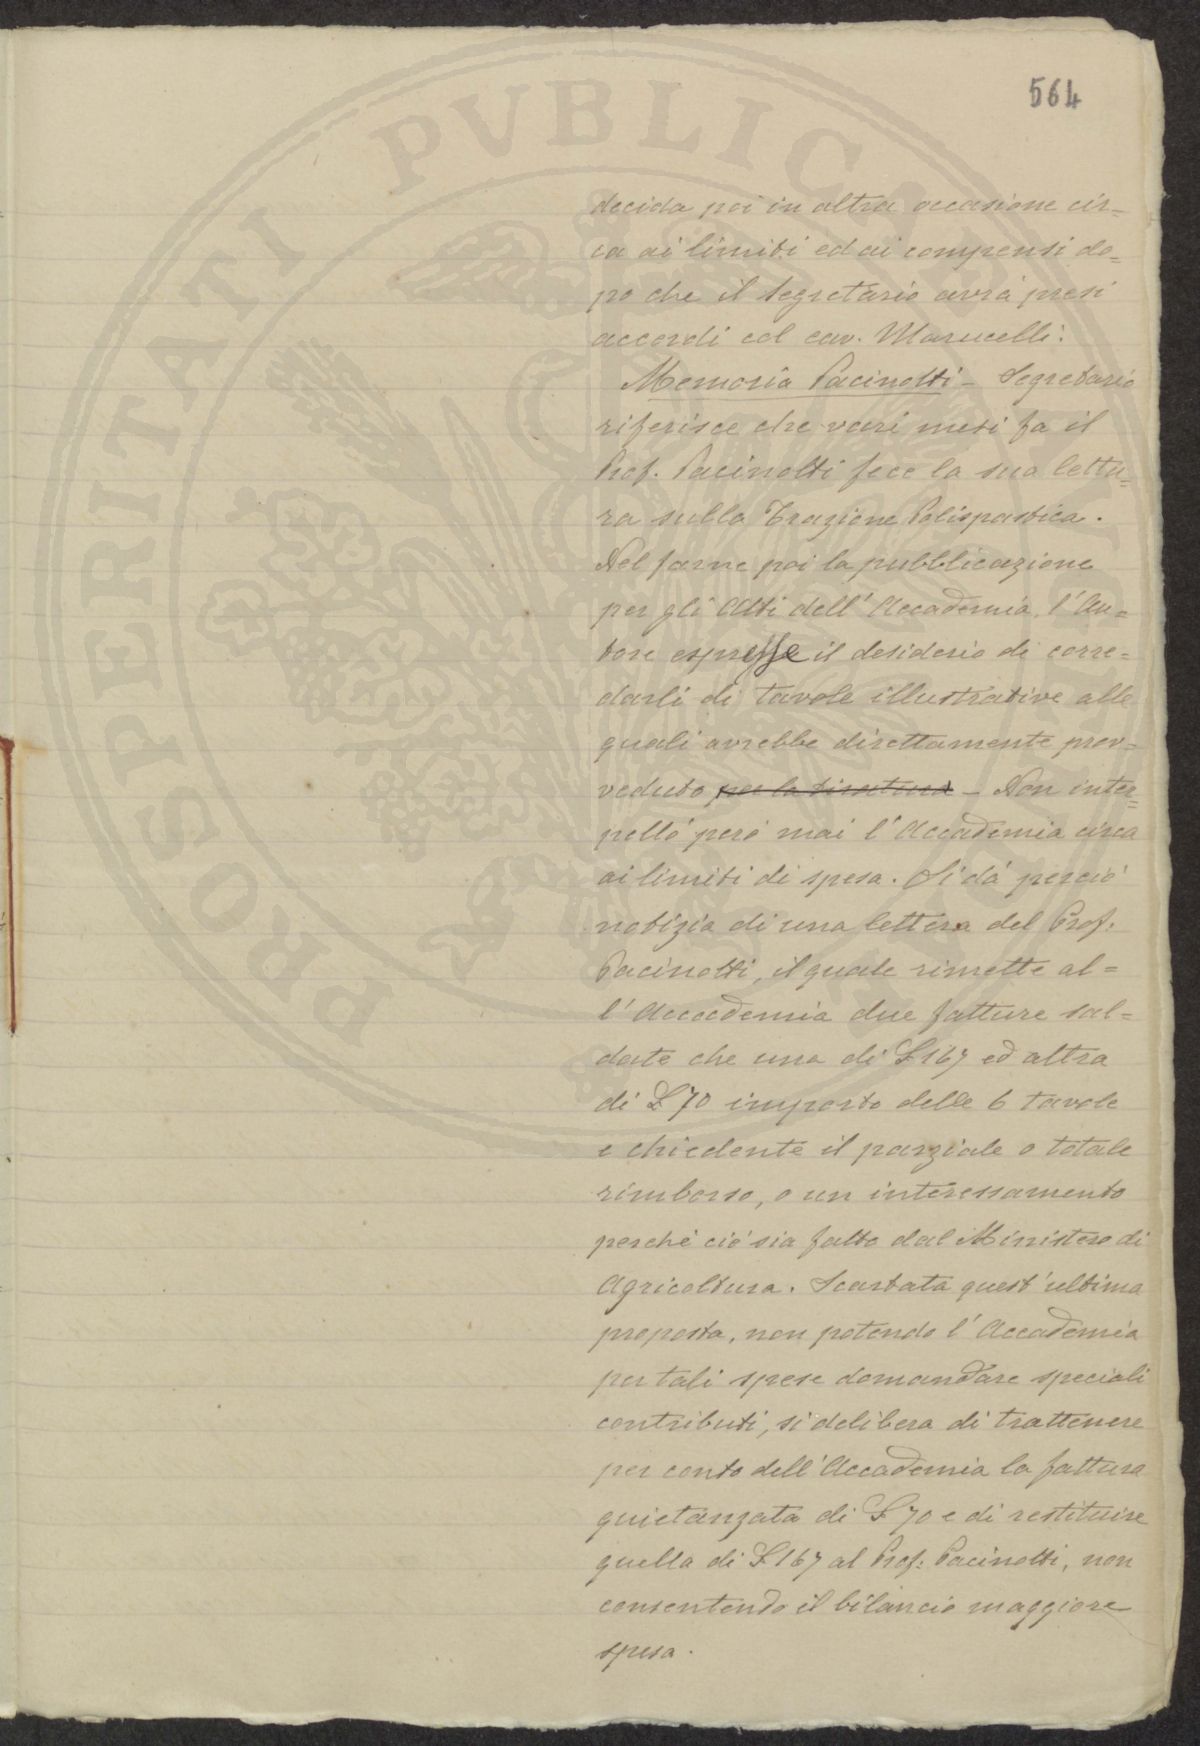 564
decida poi in altra occasione cir=
ca ai limiti ed ai compensi do=
po che il Segretario avrà presi
accordi col cav. Marucelli.
Memoria Pacinotti – Segretario
riferisce che vari mesi fa il
Prof. Pacinotti fece la sua lettu=
ra sulla Trazione Polispastica.
Nel farne poi la pubblicazione
per gli Atti dell'Accademia l'Au=
tore espresse il desiderio di corre=
darli di tavole illustrative alle
quali avrebbe direttamente prov=
veduto – Non inter=
pellò però mai l'Accademia circa
ai limiti di spesa. Si dà perciò
notizia di una lettera del Prof.
Pacinotti, il quale rimette al=
l'Accademia due fatture sal=
date che una di £ 167 ed altra
di £ 70 importo delle 6 tavole
e chiedente il parziale o totale
rimborso, o un interessamento
perchè ciò sia fatto dal Ministero di
Agricoltura. Scartata quest'ultima
proposta, non potendo l'Accademia
per tali spese domandare speciali
contributi, si delibera di trattenere
per conto dell'Accademia la fattura
quietanzata di £ 70 e di restituire
quella di £ 167 al Prof. Pacinotti, non
consentendo il bilancio maggiore
spesa.
PROSPERITATI PVBLICAE